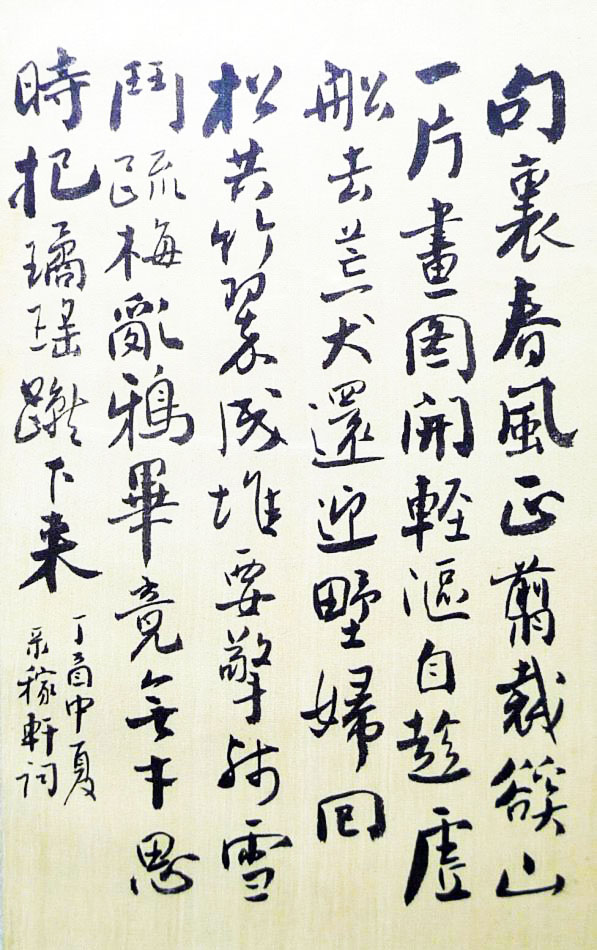 句裏春風正翦裁谿山
一片畫图開軽漚自趁虛
船去荒犬還迎野婦回
松共竹翠成堆要擎殘雪
鬥疏梅亂鴉畢竟無才思
時把瓊瑤蹴下来
丁酉中夏
录稼軒詞